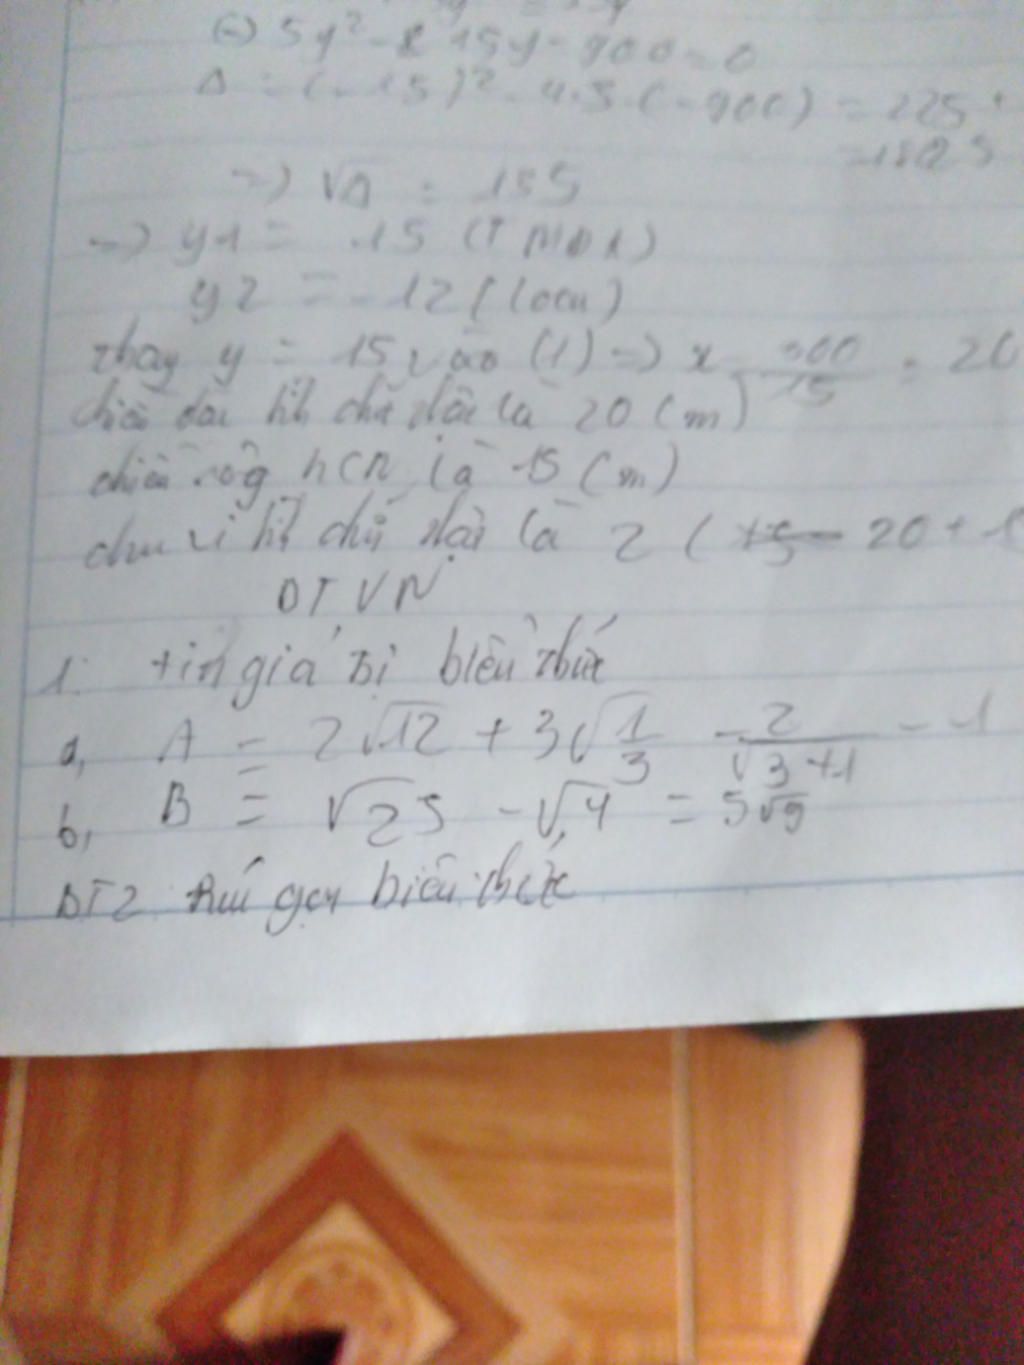 (=) 5y² - 15y - 900 = 0
Δ = (-15)² - 4.5.(-900) = 225 +
= 18225
=> √Δ = 135
=> y1 = 15 (TMĐK)
y2 = -12 (loại)
thay y = 15 vào (1) => x = 300/15 = 20
chiều dài hìh chữ nhật là 20 (m)
chiều rộg hCN là 15 (m)
chu vi hìh chữ nhật là 2 ( 20 + 1
BTVN
1. tíh giá trị biểu thức
a, A = 2√12 + 3√1/3 - 2/√3+1 - 1
b, B = √25 - √4 = 5√9
BT2 Rút gọn biểu thức